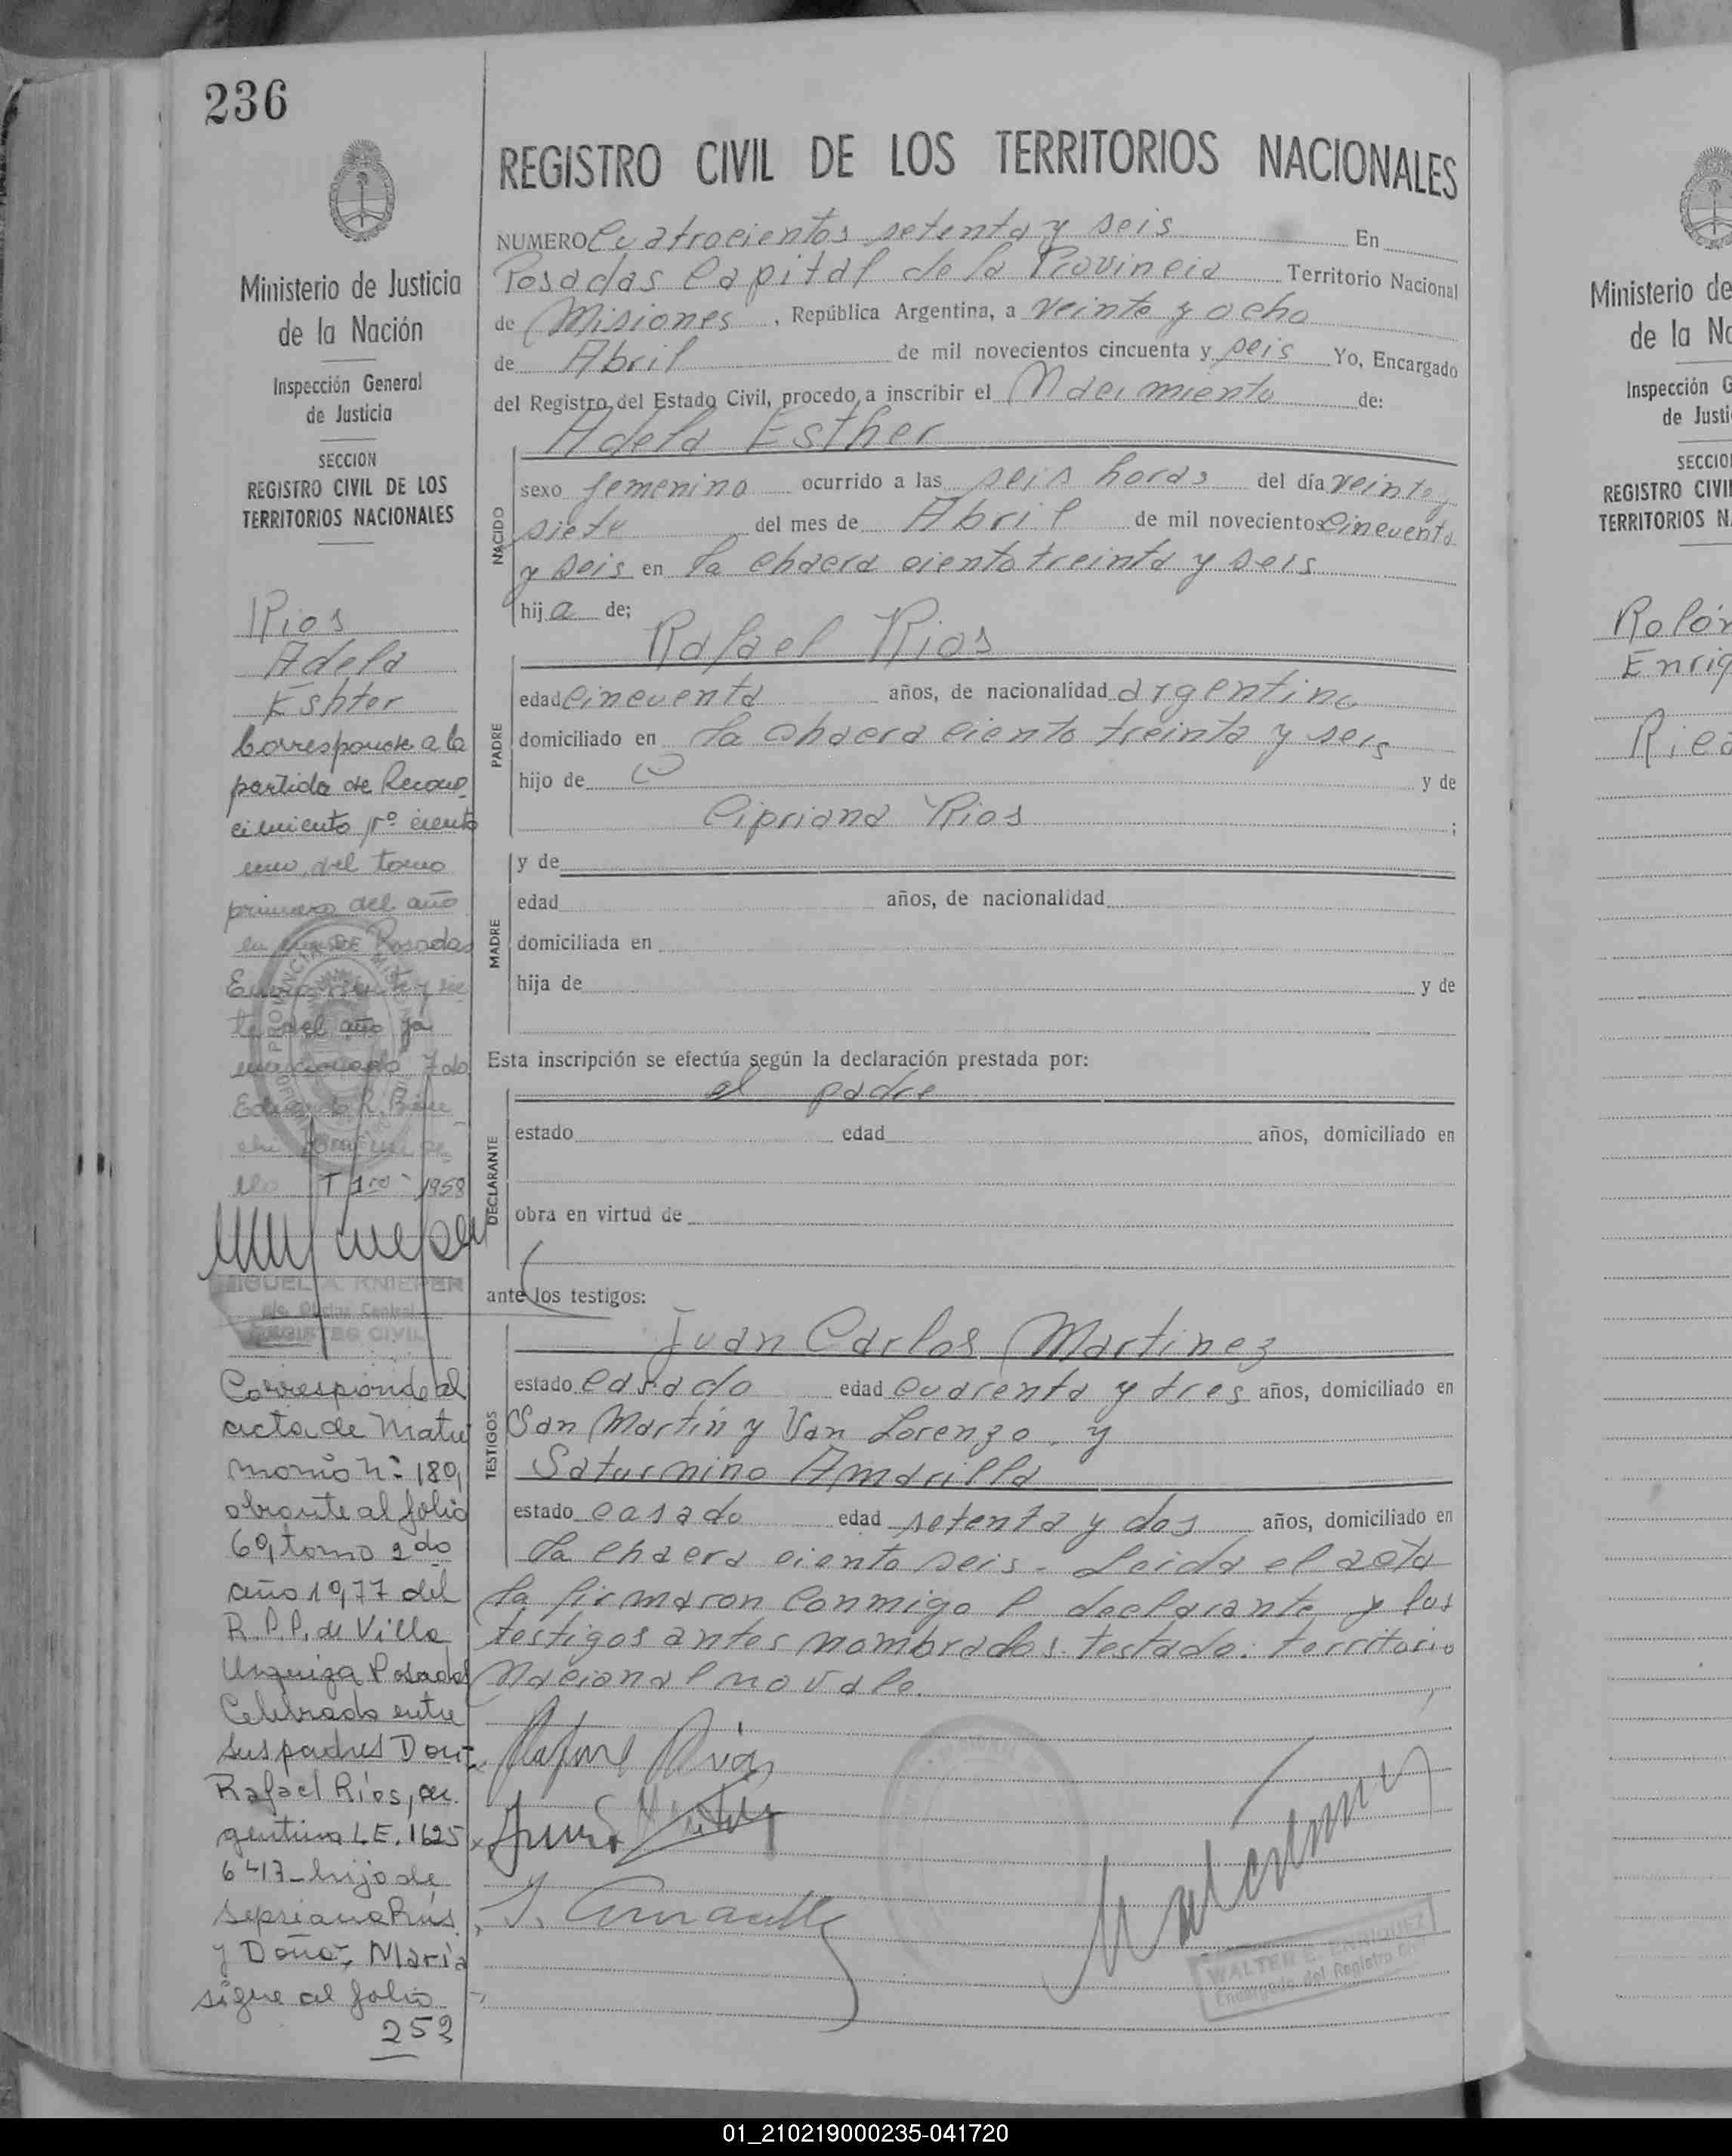 236
Ministerio de Justicia
de la Nación
Inspección General
de Justicia
SECCION
REGISTRO CIVIL DE LOS
TERRITORIOS NACIONALES
Rios
Adela
Eshter
Corresponde a la
partida de Recono-
cimiento nº ciento
uno, del tomo
primero del año
Posadas
Enero
te del año ya
mencionado Fdo
Eduardo R.
T 1ro 1958
MIGUEL A. KNIEPER
Oficina Central
REGISTRO CIVIL
Corresponde al
acta de Matri
monio Nº 180,
obrante al folio
60, tomo 2do
año 1977 del
R.P.P. de Villa
Urquiza Posadas
Celebrado entre
sus padres Don:
Rafael Ríos, ar.
gentino L.E. 1625
6417_ hijo de
Sepriana Ríos
y Doña, María
sigue al folio
253
REGISTRO CIVIL DE LOS TERRITORIOS NACIONALES
NUMERO Cuatrocientos setenta y seis En
Posadas Capital de la Provincia Territorio Nacional
de Misiones , República Argentina, a veinte y ocho
de Abril de mil novecientos cincuenta y seis Yo, Encargado
del Registro del Estado Civil, procedo a inscribir el Nacimiento de:
Adela Esther
NACIDO
sexo femenino ocurrido a las seis horas del día veinte y
siete del mes de Abril de mil novecientos Cincuenta
y seis en la chacra ciento treinta y seis
hij a de;
Rafael Rios
PADRE
edad cincuenta años, de nacionalidad argentino
domiciliado en la chacra ciento treinta y seis
hijo de y de
Cipriana Rios ;
MADRE
y de
edad años, de nacionalidad
domiciliada en
hija de y de
Esta inscripción se efectúa según la declaración prestada por:
el padre
DECLARANTE
estado edad años, domiciliado en
obra en virtud de
ante los testigos:
Juan Carlos Martinez
TESTIGOS
estado casado edad cuarenta y tres años, domiciliado en
San Martin y San Lorenzo, y
Saturnino Amarilla
estado casado edad setenta y dos años, domiciliado en
la chacra ciento seis. Leida el acta
la firmaron conmigo l declarante y los
testigos antes nombrados. testado: territorio
nacional no vale.
Rafael Rios
S. Amarilla
WALTER E. ENRIQUEZ
Encargado del Registro Civil
Ministerio de
de la Na
Inspección G
de Justi
SECCIO
REGISTRO CIVI
TERRITORIOS N
Rolón
Enriq
01_210219000235-041720